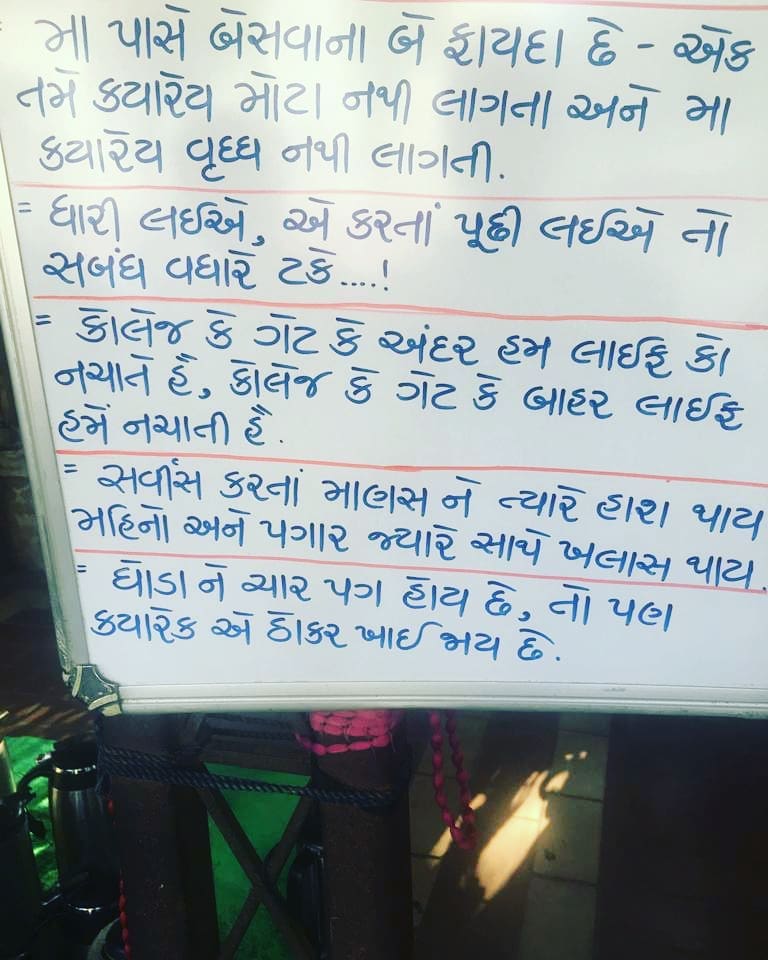 = મા પાસે બેસવાના બે ફાયદા છે - એક
તમે કયારેય મોટા નથી લાગતા અને મા
કયારેય વૃધ્ધ નથી લાગતી.
= ધારી લઈએ, એ કરતાં પૂછી લઈએ તો
સબંધ વધારે ટકે....!
= કોલેજ કે ગેટ કે અંદર હમ લાઈફ કો
નચાતે હૈં, કોલેજ કે ગેટ કે બાહર લાઈફ
હમેં નચાતી હૈ.
= સર્વીસ કરતાં માણસ ને ત્યારે હાશ થાય
મહિનો અને પગાર જ્યારે સાથે ખલાસ થાય.
= ઘોડા ને ચાર પગ હોય છે, તો પણ
કયારેક એ ઠોકર ખાઈ જાય છે.